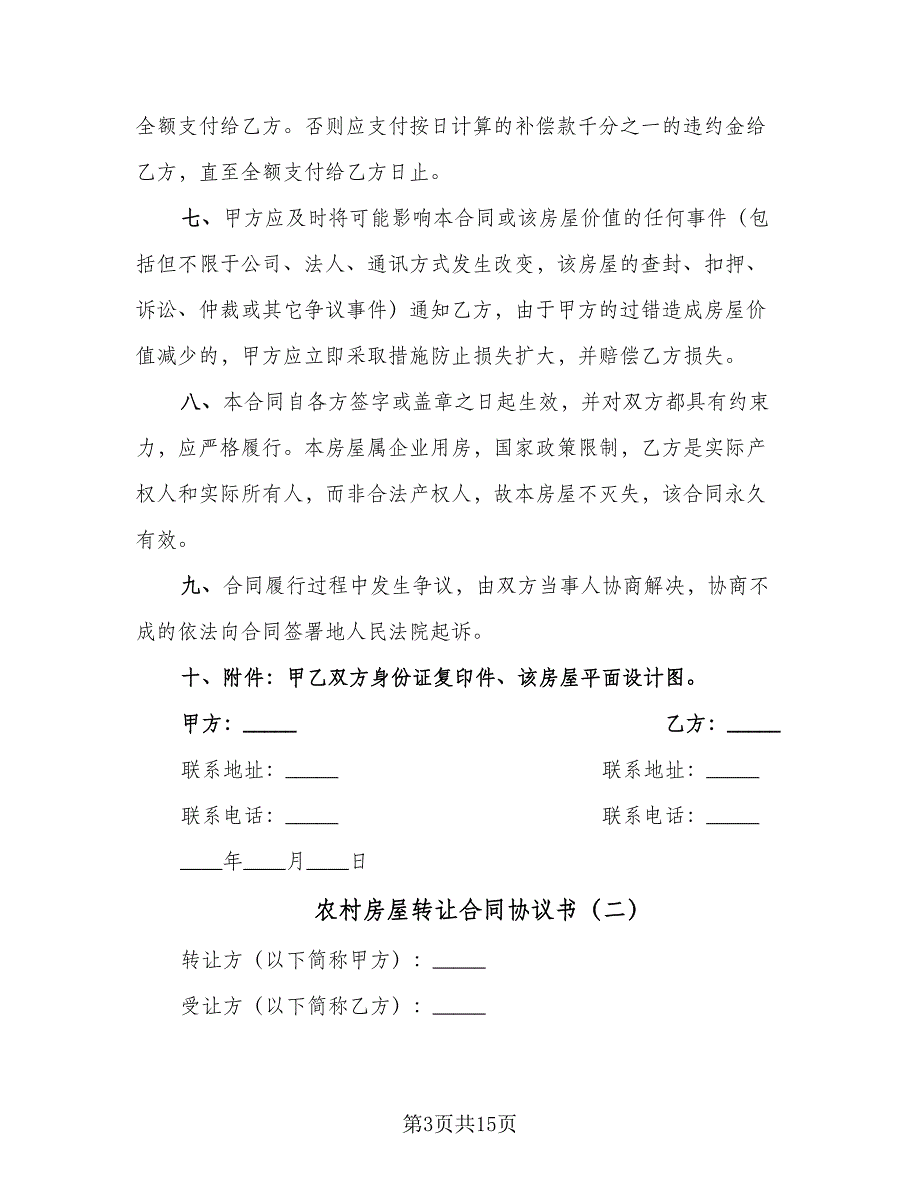 全额支付给乙方。否则应支付按日计算的补偿款千分之一的违约金给
乙方，直至全额支付给乙方日止。
七、甲方应及时将可能影响本合同或该房屋价值的任何事件（包
括但不限于公司、法人、通讯方式发生改变，该房屋的查封、扣押、
诉讼、仲裁或其它争议事件）通知乙方，由于甲方的过错造成房屋价
值减少的，甲方应立即采取措施防止损失扩大，并赔偿乙方损失。
八、本合同自各方签字或盖章之日起生效，并对双方都具有约束
力，应严格履行。本房屋属企业用房，国家政策限制，乙方是实际产
权人和实际所有人，而非合法产权人，故本房屋不灭失，该合同永久
有效。
九、合同履行过程中发生争议，由双方当事人协商解决，协商不
成的依法向合同签署地人民法院起诉。
十、附件：甲乙双方身份证复印件、该房屋平面设计图。
甲方：_____ 乙方：_____
联系地址：_____ 联系地址：_____
联系电话：_____ 联系电话：_____
____年____月____日
农村房屋转让合同协议书（二）
转让方（以下简称甲方）：_____
受让方（以下简称乙方）：_____
第3页共15页